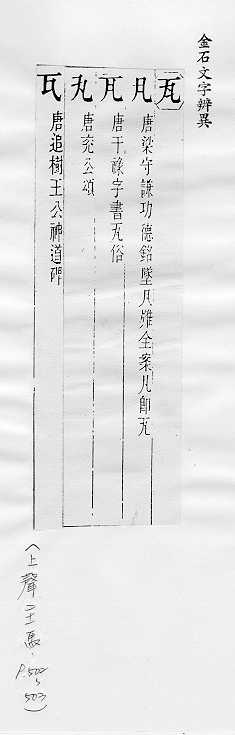 金石文字辨異
瓦
凡 唐梁守謙功德銘墜凡雖全案凡即瓦
唐干祿字書瓦俗
丸 唐兗公頌
唐追樹王公神道碑
(上聲二十一馬.
P.502
503)